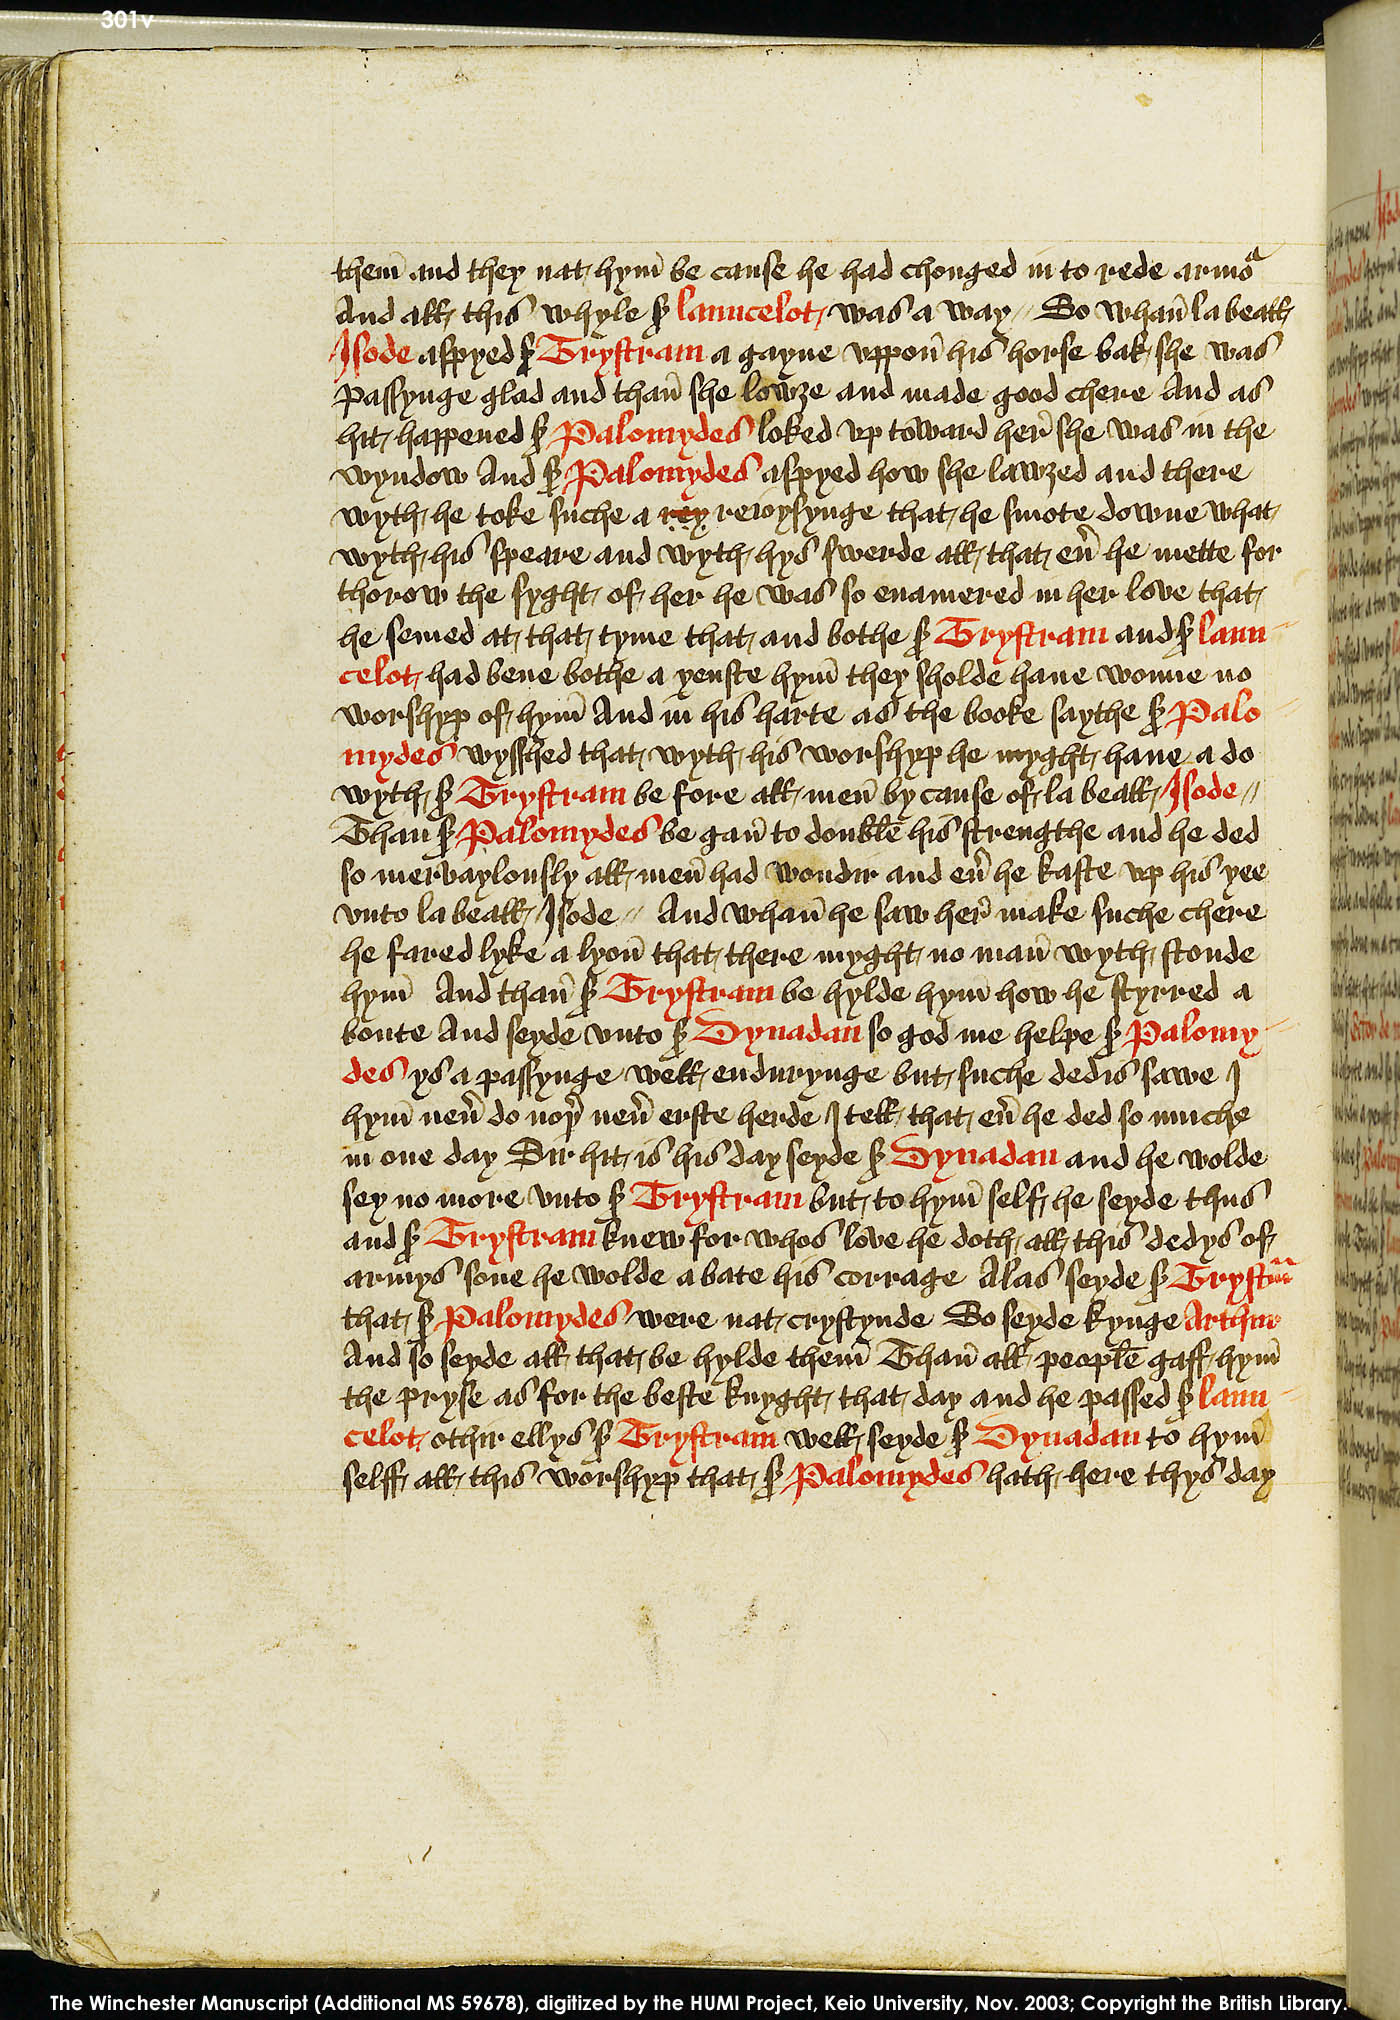 301v
them̄ and they nat hym̄ be cause he had chonged in to rede armoᵃ
And all this whyle ẜ launcelot was a way // So whan̄ la beall
Isode aspyed ẜ Trystram a gayne vppon̄ his horse bak she was
Passynge glad and than̄ she lowze and made good chere And as
hit happened ẜ Palomydes loked vp toward her̄ she was in the
wyndow And ẜ Palomydes aspyed how she lawzed and there
wyth he toke suche a rey reioysynge that he smote downe what
wyth his speare and wyth hys swerde all that eū he mette for
thorow the syght of her he was so enamered in her love that
he semed at that tyme that and bothe ẜ Trystram and ẜ laun
celot had bene bothe a yenste hym̄ they sholde haue wonne no
worshyp of hym̄ And in his harte as the booke saythe ẜ Palo
mydes wysshed that wyth his worshyp he myght haue a do
wyth ẜ Trystram be fore all men̄ by cause of la beall Isode //
Than ẜ Palomydes be gan̄ to double his strengthe and he ded
so mervaylously all men̄ had wondir and eū he kaste vp his yee
vnto la beall Isode // And whan̄ he saw her̄ make suche chere
he fared lyke a lyon̄ that there myght no man̄ wyth stonde
hym̄ And than̄ ẜ Trystram be hylde hym̄ how he styrred a
boute And seyde vnto ẜ Dynadan so god me helpe ẜ Palomy
des ys a passynge well endurynge but suche dedis sawe I
hym̄ neū do nor̄ neū erste herde I tell that eū he ded so muche
in one day Sir hit is his day seyde ẜ Dynadan and he wolde
sey no more vnto ẜ Trystram but to hym̄ self he seyde thus
and ẜ Trystram knew for whos love he doth all this dedys of
armys sone he wolde a bate his corrage Alas seyde ẜ Trystᵃm̄
that ẜ Palomydes were nat crystynde So seyde kynge Arthur
And so seyde all that be hylde them̄ Than̄ all people gaff hym̄
the pryse as for the beste knyght that day and he passed ẜ laun
celot othir ellys ẜ Trystram well seyde ẜ Dynadan to hym̄
selff all this worshyp that ẜ Palomydes hath here thys day
The Winchester Manuscript (Additional MS 59678), digitized by the HUMI Project, Keio University, Nov. 2003; Copyright the British Library.